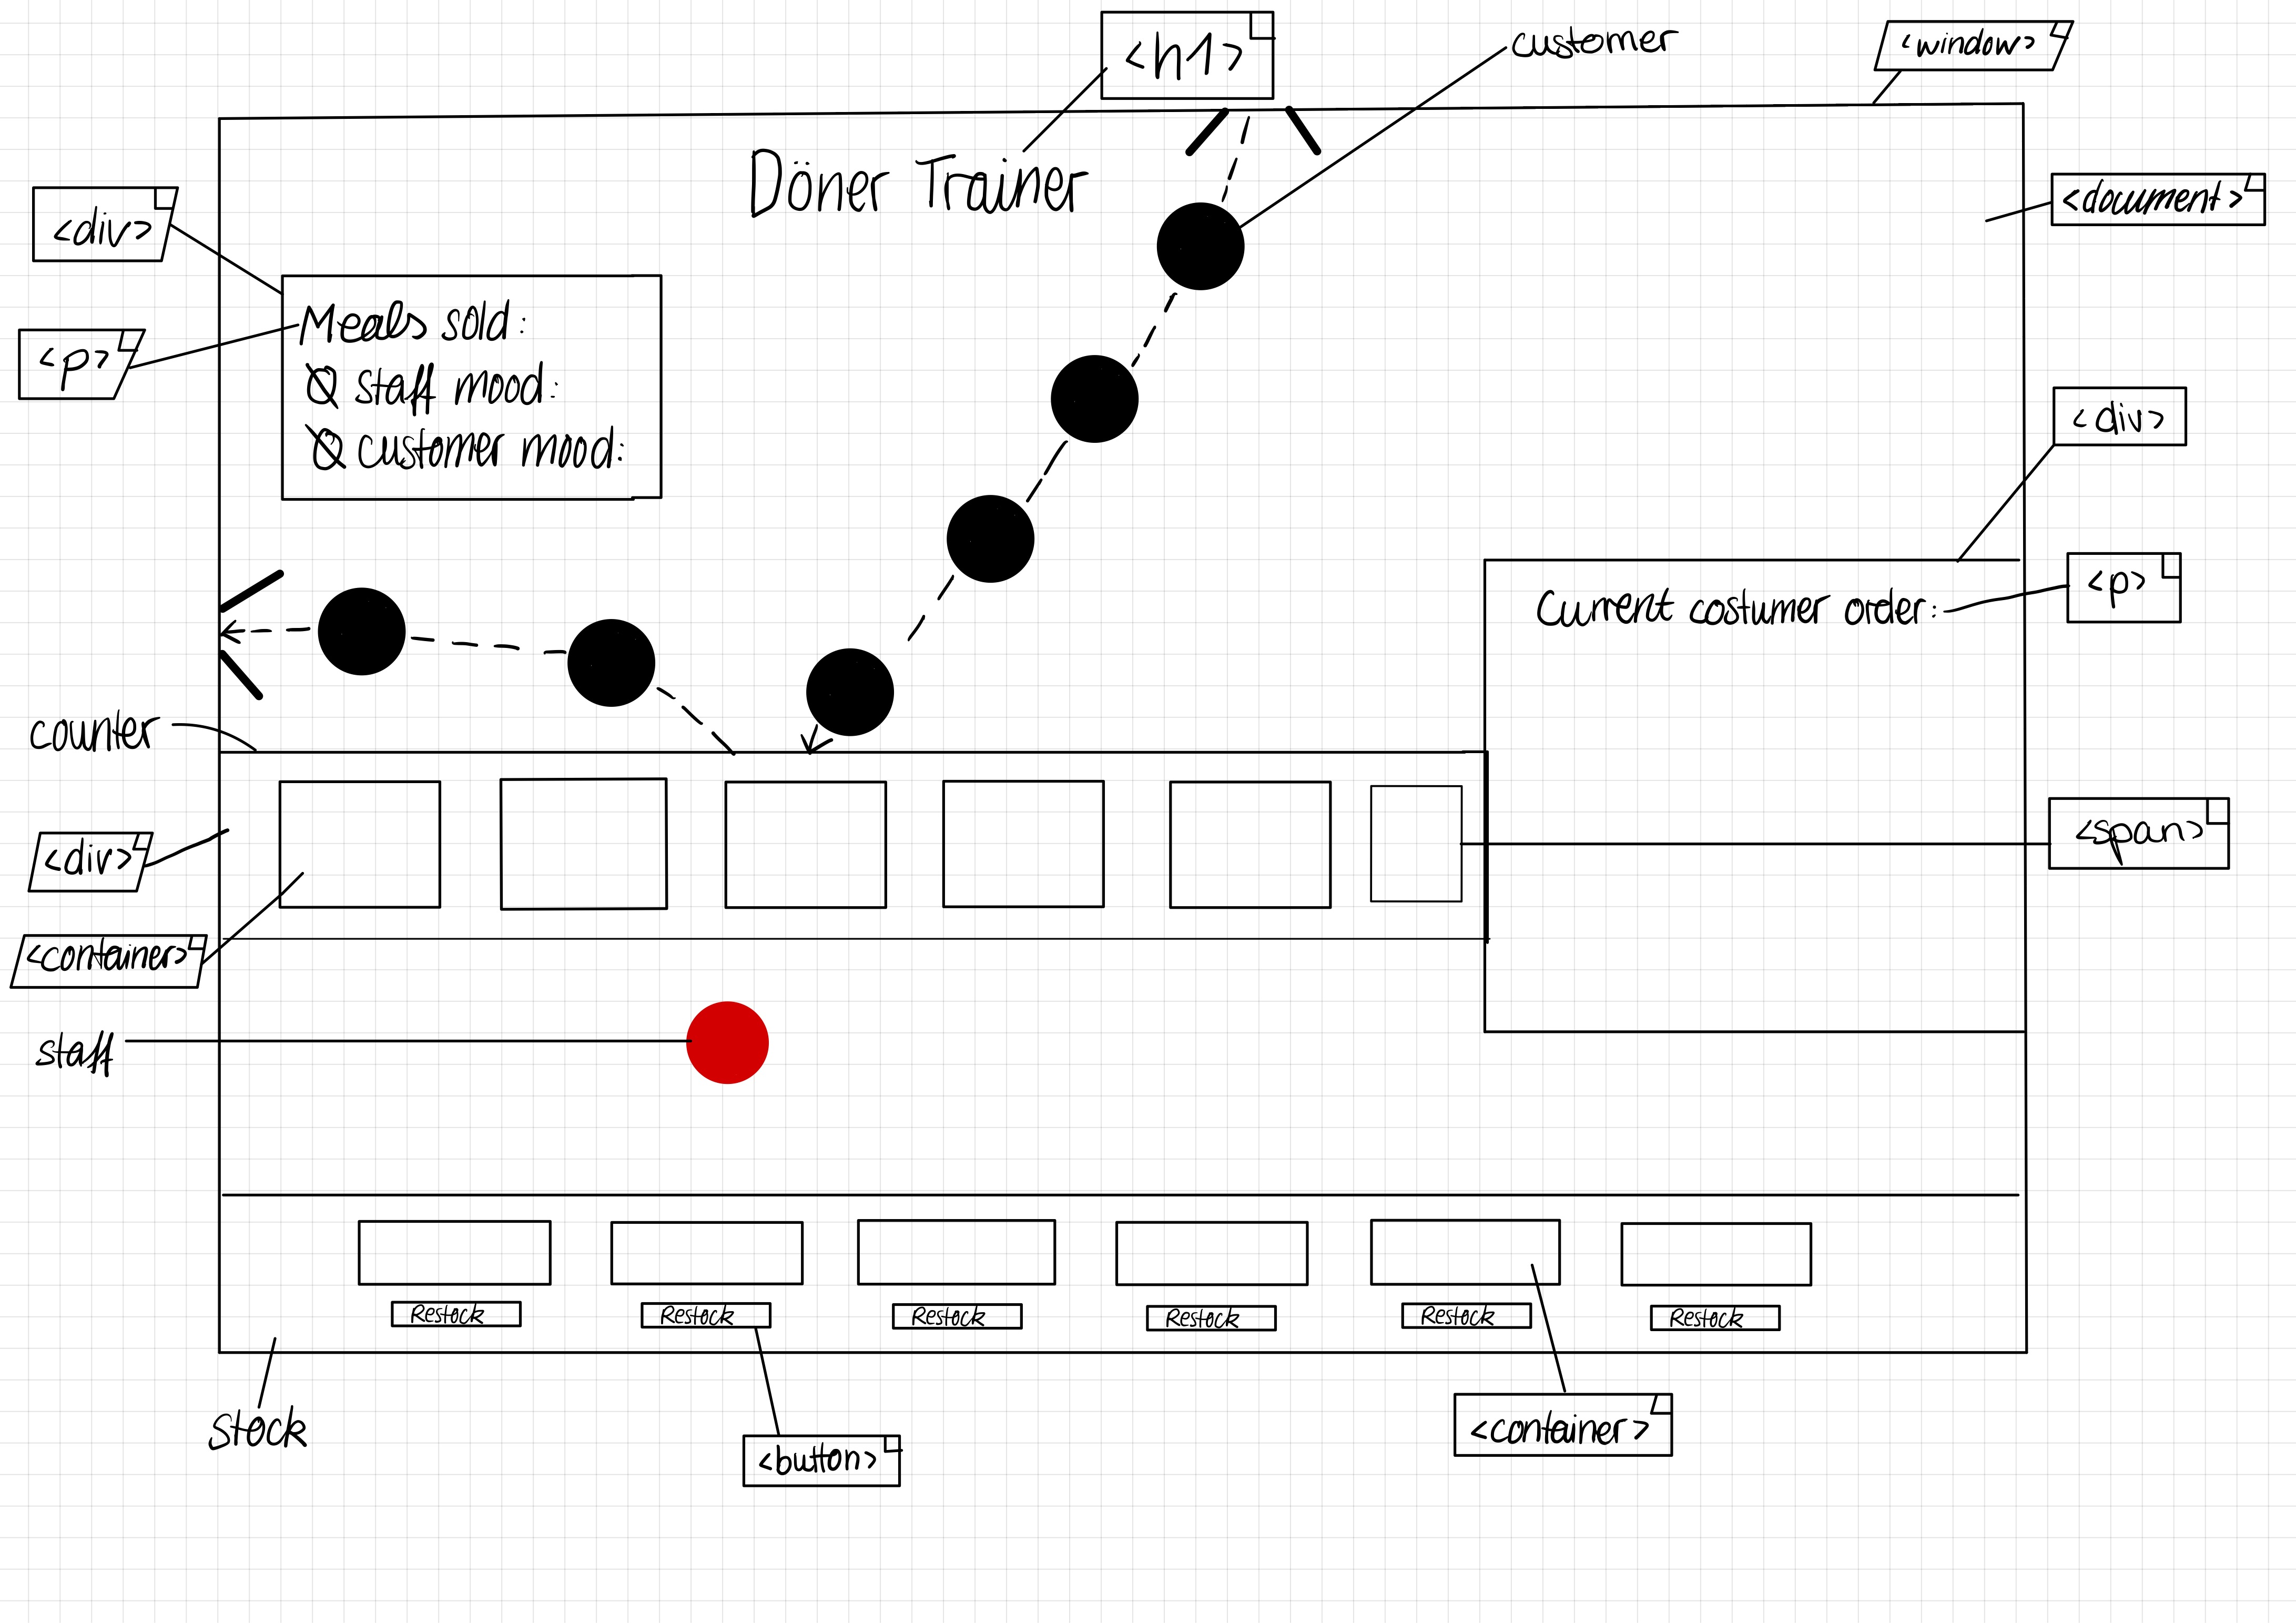 <h1>
customer
<window>
Döner Trainer
<document>
<div>
Meals sold:
<p>
Ø staff mood:
Ø customer mood:
<div>
Current costumer order:
<p>
counter
<div>
<span>
<container>
staff
Restock
Restock
Restock
Restock
Restock
Restock
stock
<button>
<container>